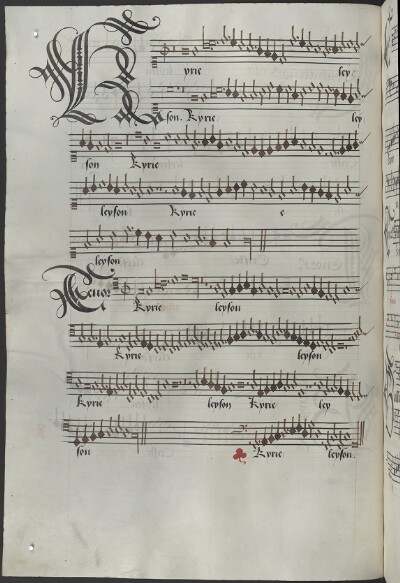 Kyrie ley
son. Kyrie ley
son Kyrie
leyson Kyrie e
leyson
Tenor Kyrie leyson
Kyrie leyson
Kyrie leyson Kyrie ley
son Kyrie leyson.